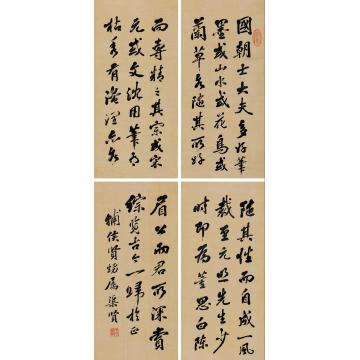 國朝士大夫多好筆
墨或山水或花鳥或
蘭草各隨其所好
而專精之其宗或宋
元或文沈用筆有
枯秀有濃淡各
隨其性而自成一風
裁至元照先生少
時即為董思白陳
眉公兩君所深賞
綜覽古今一歸於正
輔侯賢
屬
賢